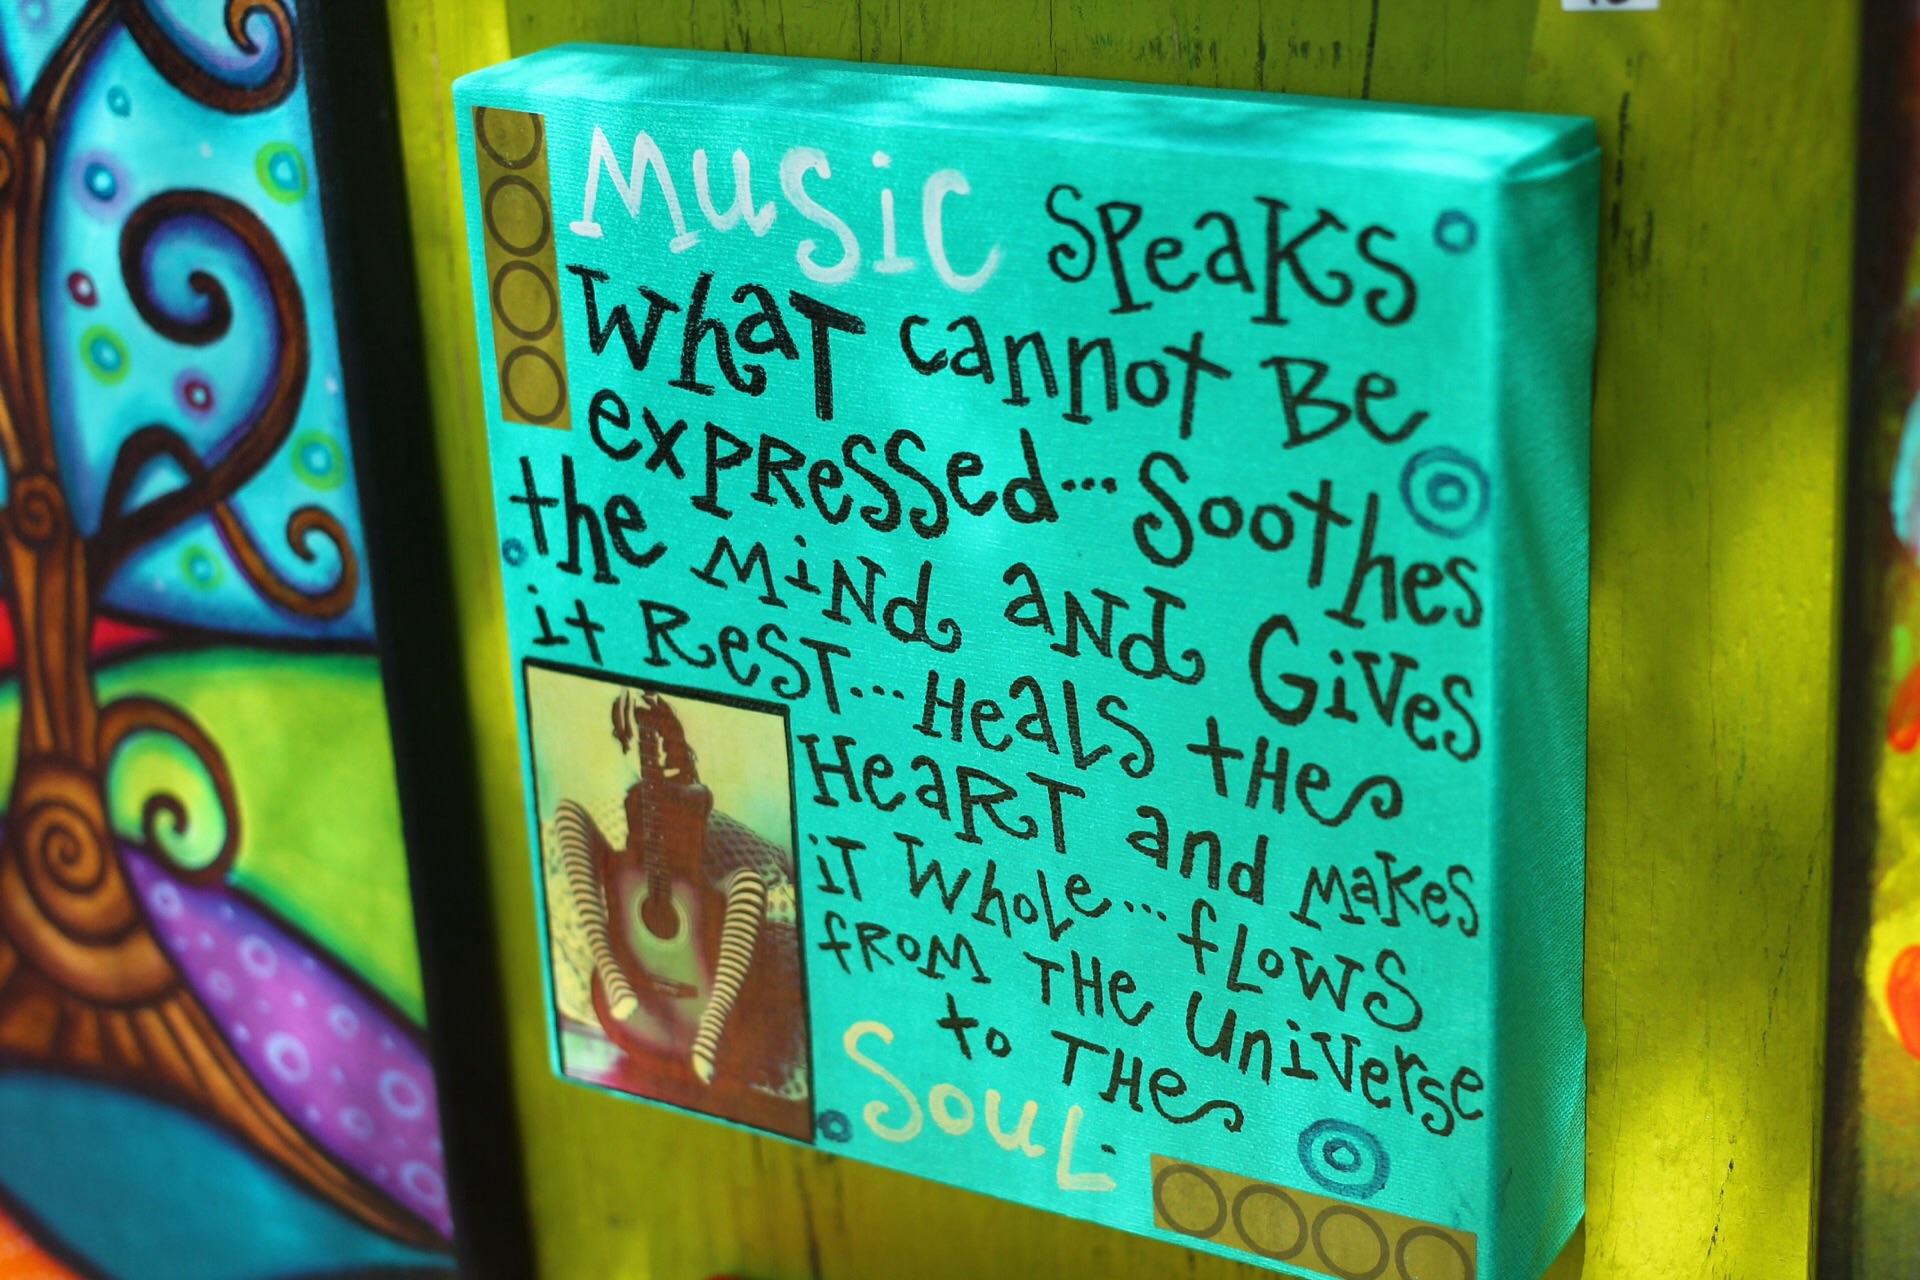 Music speaks
what cannot Be
expressed... Soothes
the mind and Gives
it Rest... Heals the
Heart and makes
it whole... flows
from the universe
to the
Soul.